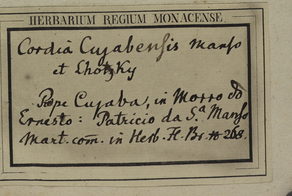 HERBARIUM REGIUM MONACENSE.
Cordia Cujabensis Manso
et Lhotzky
Prope Cujaba, in Morro do
Ernesto: Patricio da S.ª Manso
Mart. com. in Herb. Fl. Br. n 268.